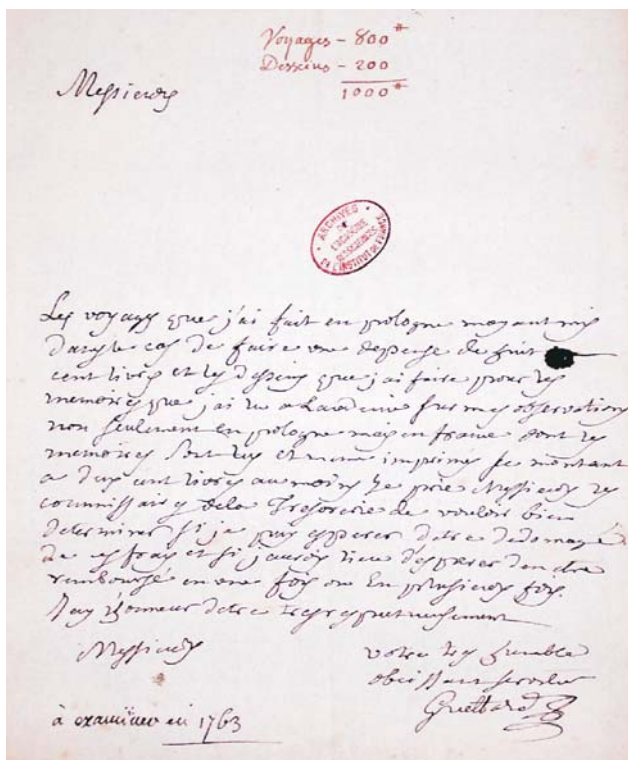 Voyages - 800#
Dessins - 200
1000#
Messieurs
ARCHIVES
DE
L'ACADEMIE
DES SCIENCES
DE L'INSTITUT DE FRANCE
Les voyages que j'ai fait en pologne mayant mis
dans le cas de faire une depense de huit
cent livres et les dessins que j'ai faire pour les
memoires que j'ai lu a Lacademie sur mes observations
non seulement en pologne mais en france dont les
memoires sont lus et meme imprimés se montant
a deux cent livres au moins Je prie Messieurs les
commissaires de la Tresorerie de vouloir bien
determiner si je puis esperer detre dedomagé
de ces frais et si jaurois lieu d'esperer den etre
remboursé en une fois ou En plusieurs fois.
J'ay l'honneur detre tres respectueusement
Messieurs
votre tres humble
obeissant serviteur
Guettard
à examiner en 1763